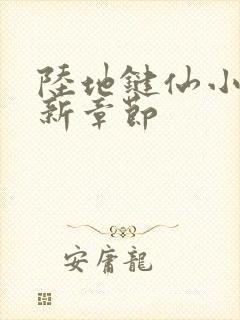 陸地鍵仙小
新章節
安庸龍